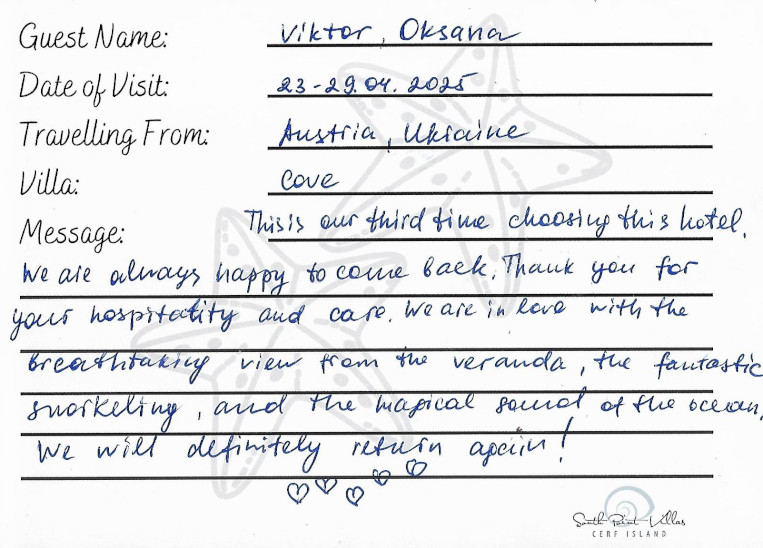 Guest Name: Viktor, Oksana
Date of Visit: 23-29.04.2025
Travelling From: Austria, Ukraine
Villa: Cove
Message: This is our third time choosing this hotel.
We are always happy to come back. Thank you for
your hospitality and care. We are in love with the
breathtaking view from the veranda, the fantastic
snorkeling, and the magical sound of the ocean.
We will definitely return again!
South Point Villas
CERF ISLAND